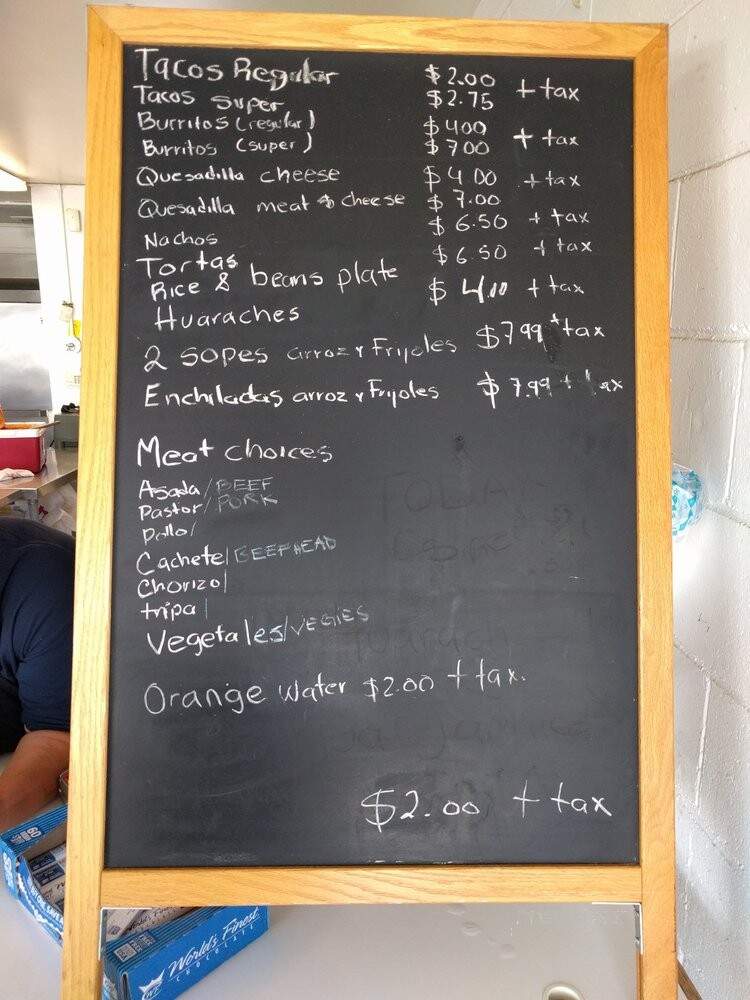 Tacos Regular $2.00 + tax
Tacos super $2.75
Burritos (regular) $400 + tax
Burritos (super) $700
Quesadilla cheese $4.00 + tax
Quesadilla meat & cheese $7.00
Nachos $6.50 + tax
Tortas $6.50 + tax
Rice & beans plate $4.00 + tax
Huaraches
2 sopes arroz y Frijoles $7.99 + tax
Enchiladas arroz y Frijoles $7.99 + tax
Meat choices
Asada/BEEF
Pastor/PORK
Pollo/
Cachete/BEEFHEAD
Chorizo/
tripa/
Vegetales/VEGIES
Orange water $2.00 + tax.
$2.00 + tax
60
World's Finest
CHOCOLATE